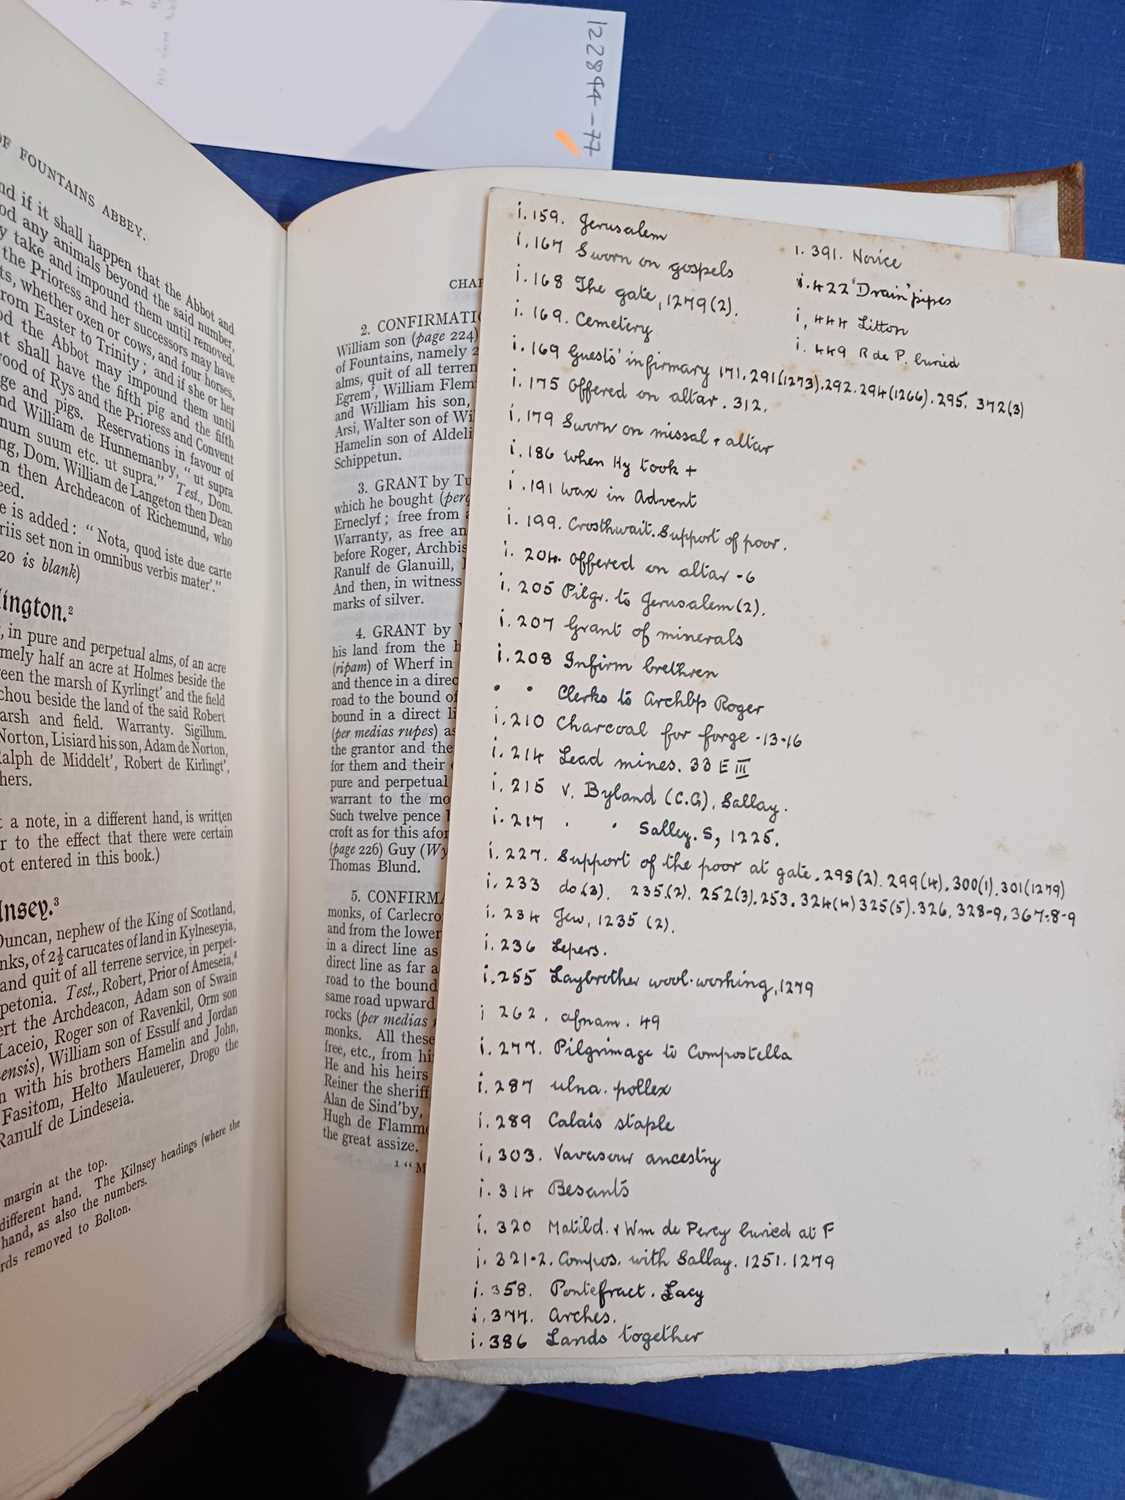 122894-77
OF FOUNTAINS ABBEY.
nd if it shall happen that the Abbot and
od any animals beyond the said number,
y take and impound them until removed.
the Prioress and her successors may have
ts, whether oxen or cows, and four horses,
from Easter to Trinity; and if she or her
od the Abbot may impound them until
nt shall have the fifth pig and the fifth
wood of Rys and the Prioress and Convent
ge and pigs. Reservations in favour of
nd William de Hunnemanby, "ut supra
num suum etc. ut supra." Test., Dom.
ng, Dom. William de Langeton then Dean
n then Archdeacon of Richemund, who
eed.
e is added: "Nota, quod iste due carte
riis set non in omnibus verbis mater'."
20 is blank)
lington.²
, in pure and perpetual alms, of an acre
mely half an acre at Holmes beside the
een the marsh of Kyrlingt' and the field
chou beside the land of the said Robert
arsh and field. Warranty. Sigillum.
Norton, Lisiard his son, Adam de Norton,
Ralph de Middelt', Robert de Kirlingt',
hers.
t a note, in a different hand, is written
r to the effect that there were certain
ot entered in this book.)
lnsey.³
Duncan, nephew of the King of Scotland,
nks, of 2½ carucates of land in Kylneseyia,
and quit of all terrene service, in perpet-
petonia. Test., Robert, Prior of Ameseia,⁴
ert the Archdeacon, Adam son of Swain
Laceio, Roger son of Ravenkil, Orm son
ensis), William son of Essulf and Jordan
n with his brothers Hamelin and John,
Fasitom, Helto Mauleuerer, Drogo the
Ranulf de Lindeseia.
margin at the top.
different hand. The Kilnsey headings (where the
hand, as also the numbers.
rds removed to Bolton.
CHAR
2. CONFIRMATIO
William son (page 224)
of Fountains, namely 2
alms, quit of all terren
Egrem', William Flem
and William his son,
Arsi, Walter son of Wi
Hamelin son of Aldeli
Schippetun.
3. GRANT by Tu
which he bought (perq
Erneclyf; free from a
Warranty, as free an
before Roger, Archbis
Ranulf de Glanuill,
And then, in witness
marks of silver.
4. GRANT by W
his land from the h
(ripam) of Wherf in
and thence in a direc
road to the bound of
bound in a direct li
(per medias rupes) as
the grantor and the
for them and their
pure and perpetual
warrant to the mo
Such twelve pence
croft as for this afor
(page 226) Guy (Wy
Thomas Blund.
5. CONFIRMA
monks, of Carlecro
and from the lower
in a direct line as
direct line as far a
road to the bound
same road upward
rocks (per medias r
monks. All these
free, etc., from hi
He and his heirs
Reiner the sheriff,
Alan de Sind'by,
Hugh de Flamme
the great assize.
¹ "M
i. 159. Jerusalem
i. 167 Sworn on gospels
i. 168 The gate, 1279(2).
i. 169. Cemetery
i. 169 Guests' infirmary 171. 291(1273). 292. 294(1266). 295. 372(3)
i. 175 Offered on altar. 312.
i. 179 Sworn on missal + altar
i. 186 When Hy took +
i. 191 Wax in Advent
i. 199. Crosthwait. Support of poor.
i. 204. Offered on altar - 6
i. 205 Pilgr. to Jerusalem (2).
i. 207 Grant of minerals
i. 208 Infirm brethren
" " Clerks to Archbp Roger
i. 210 Charcoal for forge - 13-16
i. 214 Lead mines. 33 E III
i. 215 v. Byland (C.G). Sallay.
i. 217 . . Salley. S, 1225.
i. 227. Support of the poor at gate. 298(2). 299(4). 300(1). 301(1279)
i. 233 do (3). 235(2). 252(3). 253. 324(4) 325(5). 326. 328-9, 367-8-9
i. 234 Jew, 1235 (2).
i. 236 Lepers.
i. 255 Laybrother wool-working, 1279
i 262. afnam. 49
i. 277. Pilgrimage to Compostella
i. 287 ulna. pollex
i. 289 Calais staple
i. 303. Vavasour ancestry
i. 314 Besants
i. 320 Matild. & Wm de Percy buried at F
i. 321-2. Compos. with Sallay. 1251. 1279
i. 358. Pontefract. Lacy
i. 377. Arches.
i. 386 Lands together
i. 391. Novice
i. 422 'Drain' pipes
i. 444 Litton
i. 449 R de P. buried